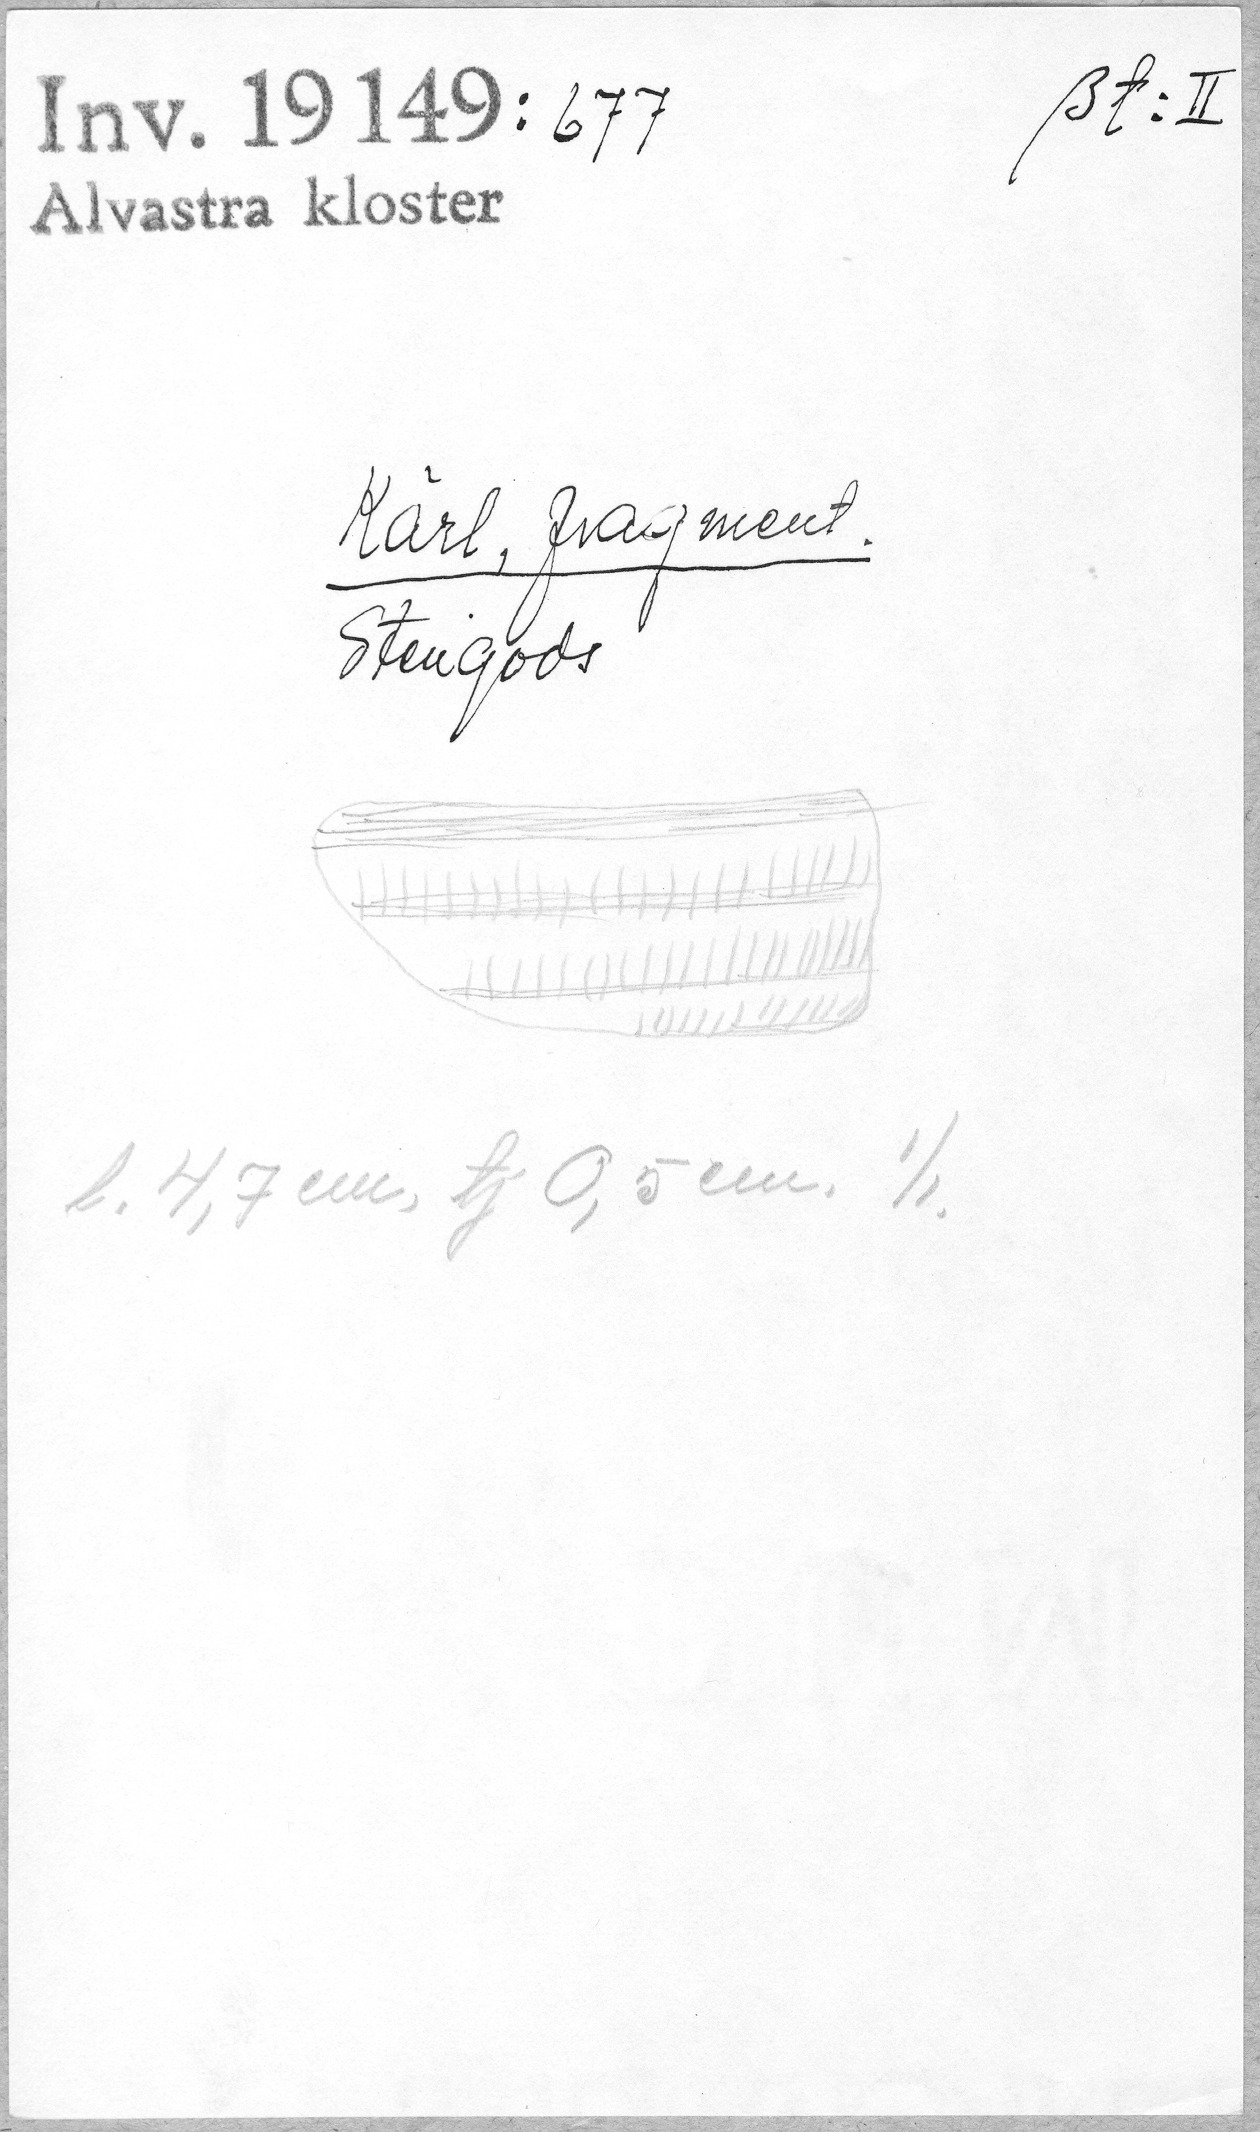 Inv. 19149:677
βt:II
Alvastra kloster
Kärl, fragment.
Stengods
l. 4,7 cm, tj 0,5 cm. 1/1.